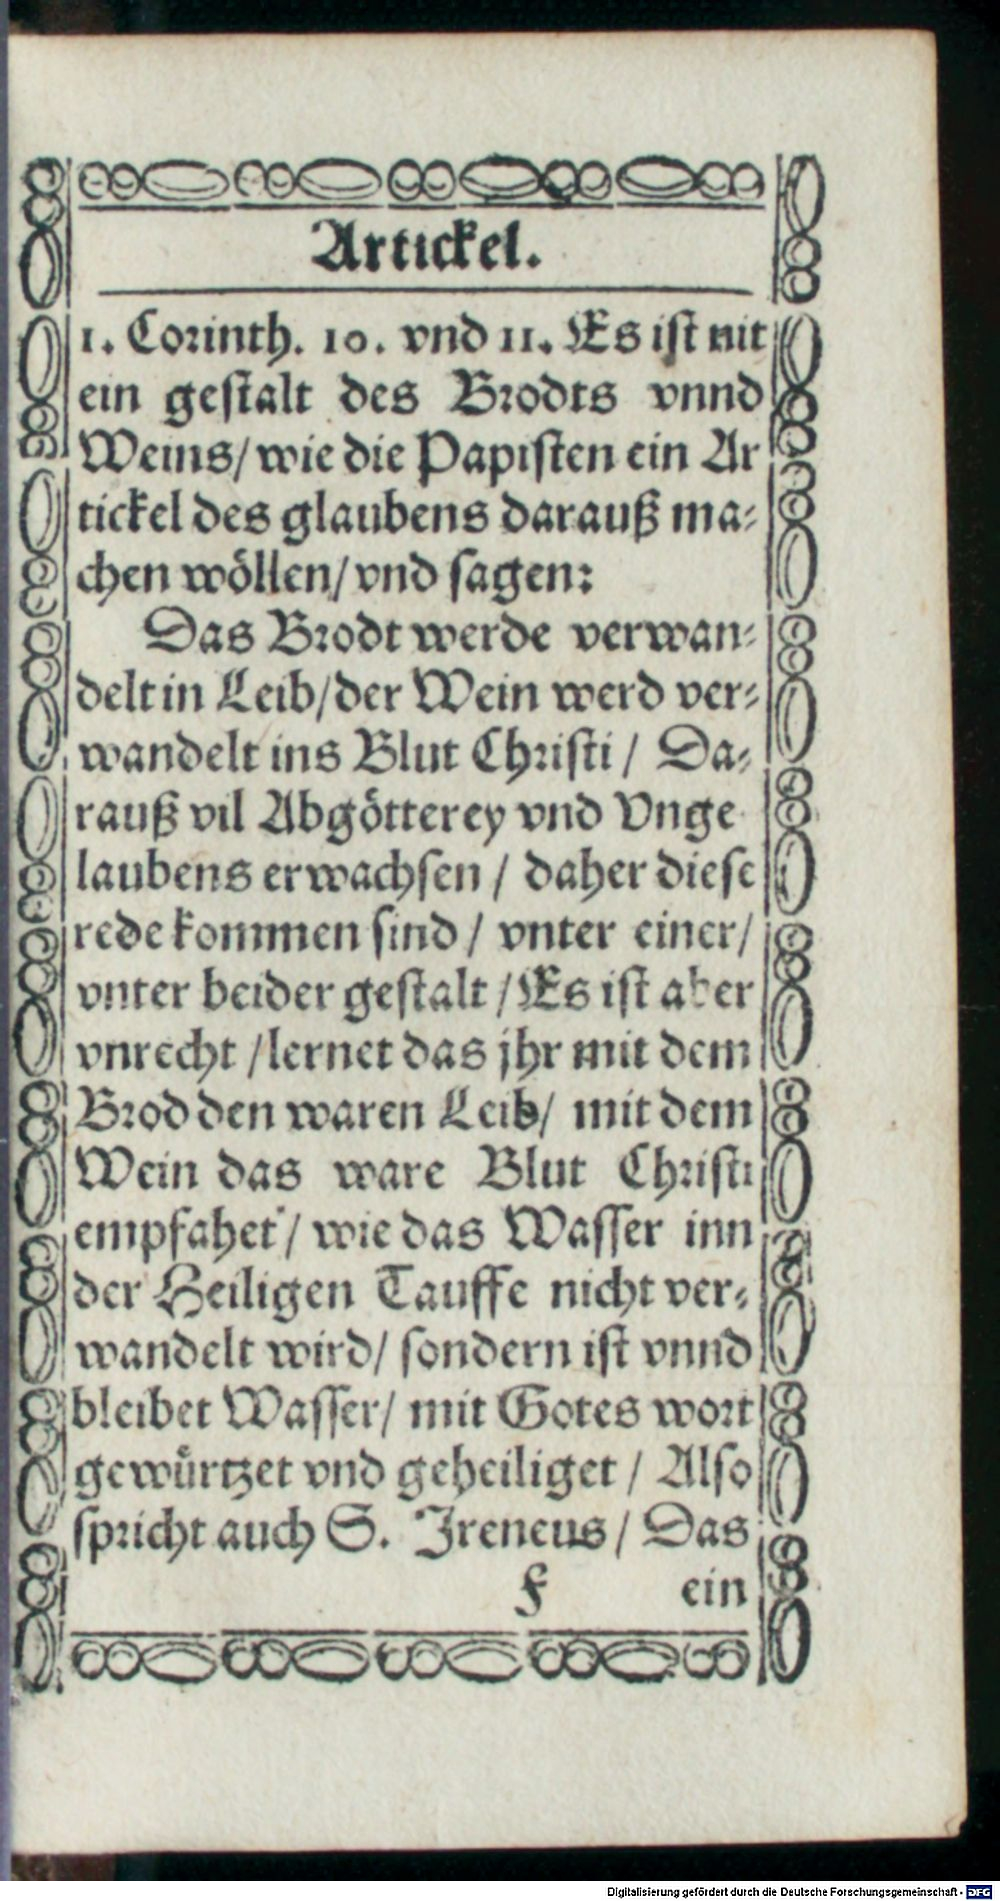 Artickel.
1. Corinth. 10. vnd 11. Es ist nit
ein gestalt des Brodts vnnd
Weins/ wie die Papisten ein Ar
tickel des glaubens darauß ma⸗
chen wöllen/ vnd sagen:
Das Brodt werde verwan⸗
delt in Leib/ der Wein werd ver⸗
wandelt ins Blut Christi / Da⸗
rauß vil Abgötterey vnd Vnge
laubens erwachsen / daher diese
rede kommen sind / vnter einer/
vnter beider gestalt / Es ist aber
vnrecht / lernet das jhr mit dem
Brod den waren Leib/ mit dem
Wein das ware Blut Christi
empfahet / wie das Wasser inn
der Heiligen Tauffe nicht ver⸗
wandelt wird/ sondern ist vnnd
bleibet Wasser/ mit Gotes wort
gewürtzet vnd geheiliget / Also
spricht auch S. Jreneus / Das
f ein
Digitalisierung gefördert durch die Deutsche Forschungsgemeinschaft - DFG